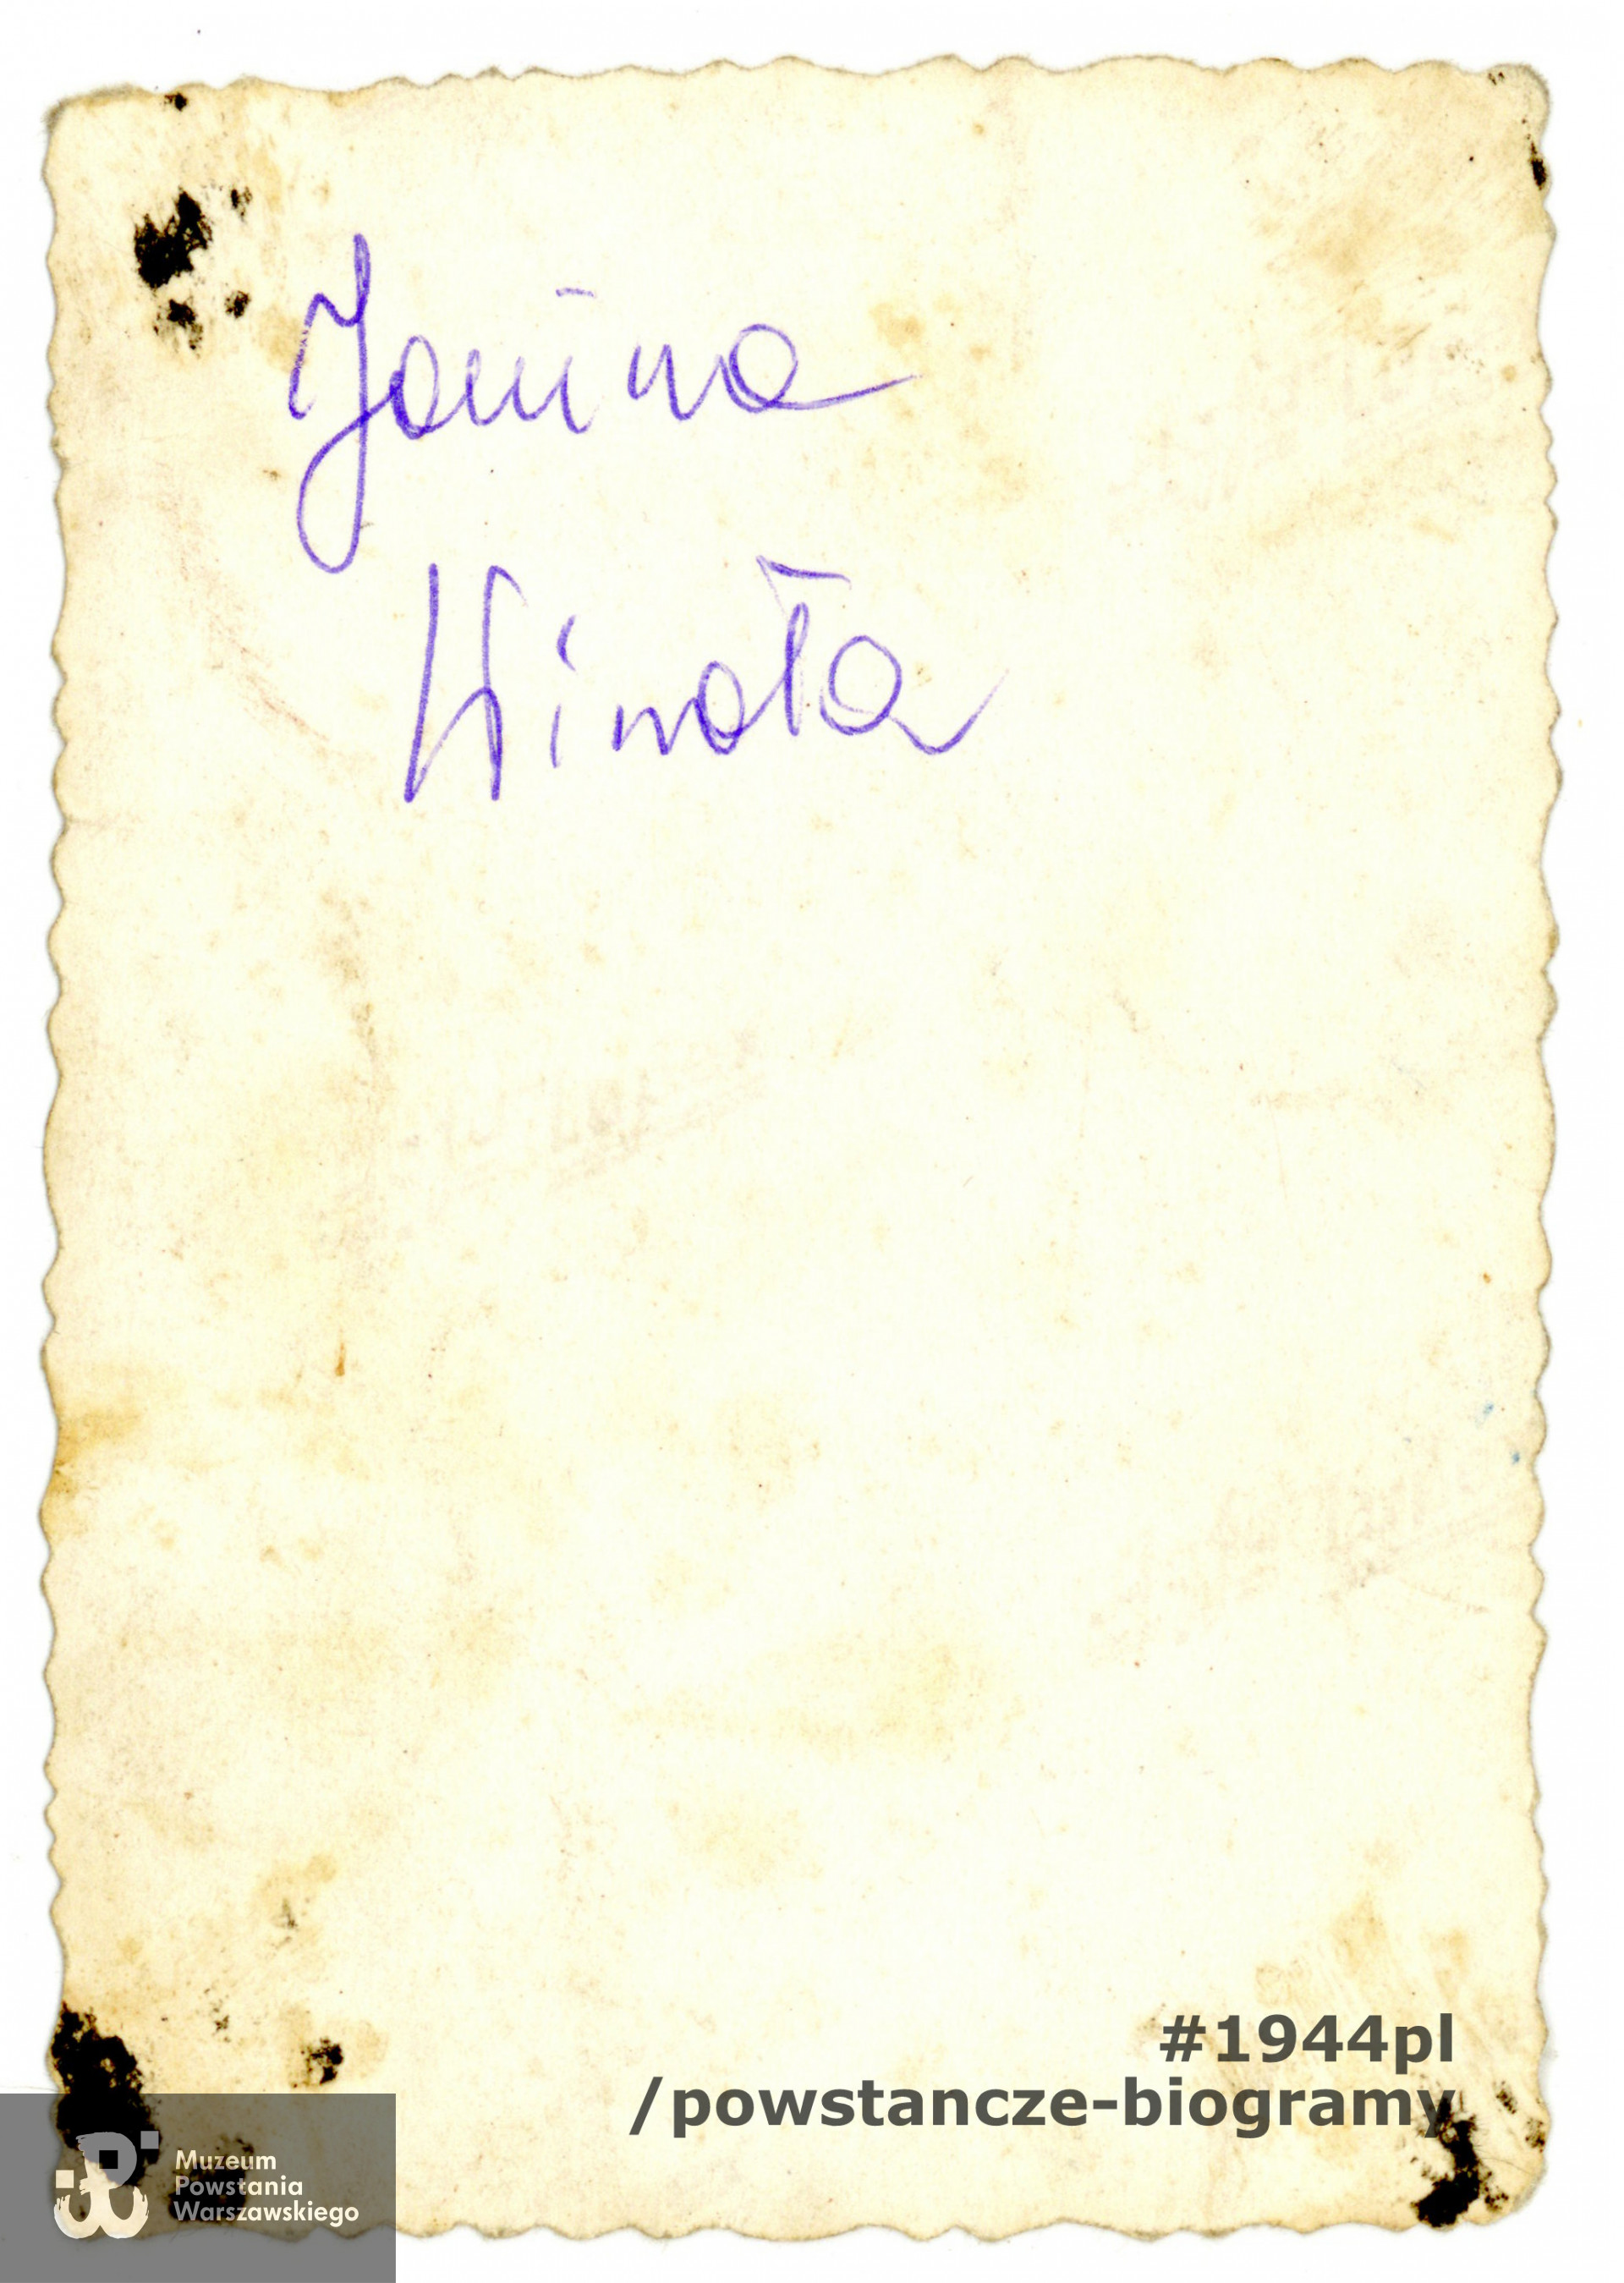 Janina
Winota
#1944pl
/powstancze-biogramy
Muzeum
Powstania
Warszawskiego